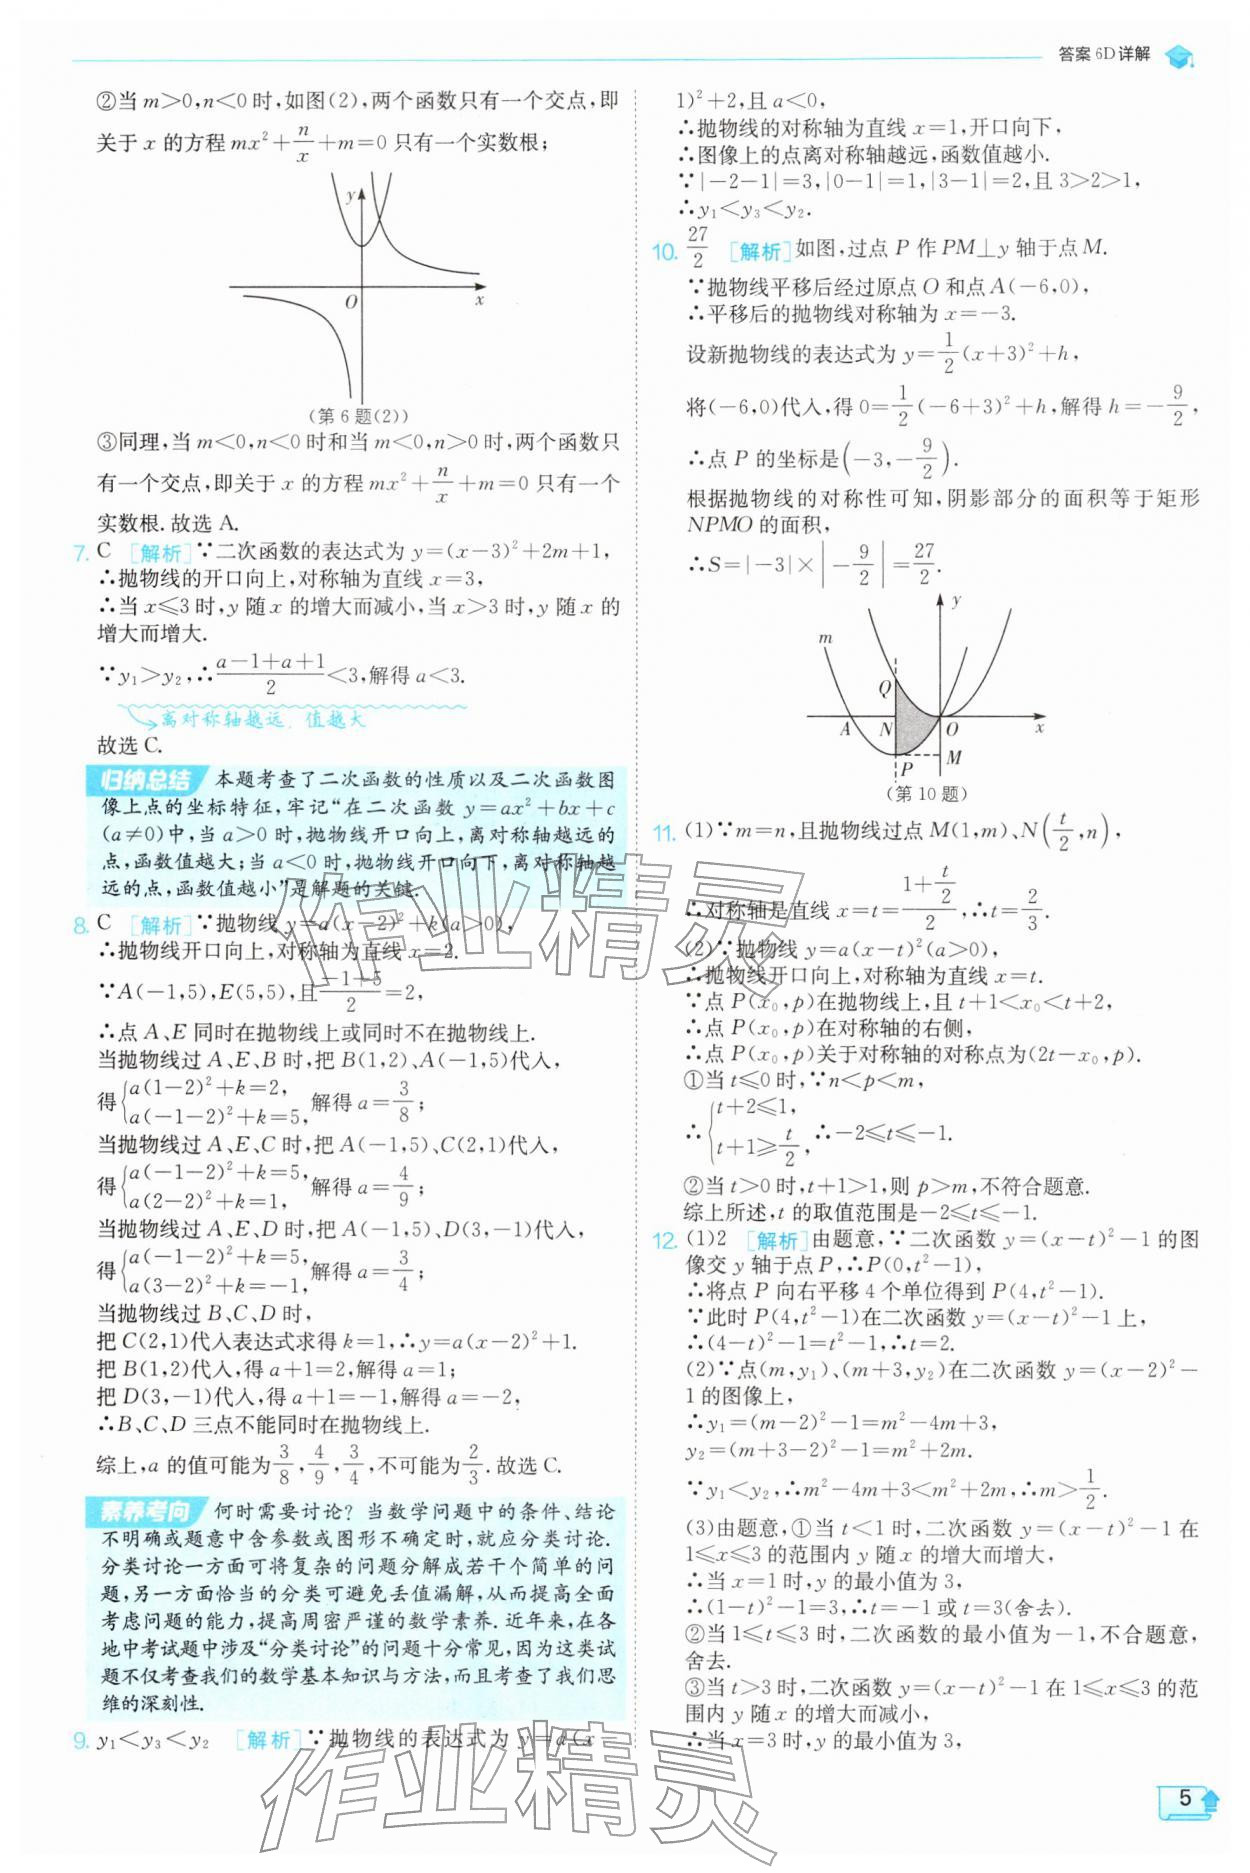 答案 6D 详解
②当 m>0,n<0 时,如图(2),两个函数只有一个交点,即
关于 x 的方程 mx²+n/x+m=0 只有一个实数根;
y
O
x
(第 6 题(2))
③同理,当 m<0,n<0 时和当 m<0,n>0 时,两个函数只
有一个交点,即关于 x 的方程 mx²+n/x+m=0 只有一个
实数根.故选 A.
7. C [解析]∵二次函数的表达式为 y=(x-3)²+2m+1,
∴抛物线的开口向上,对称轴为直线 x=3,
∴当 x⩽3 时,y 随 x 的增大而减小,当 x>3 时,y 随 x 的
增大而增大.
∵y₁>y₂,∴(a-1+a+1)/2<3,解得 a<3.
离对称轴越远,值越大
故选 C.
归纳总结 本题考查了二次函数的性质以及二次函数图
像上点的坐标特征,牢记“在二次函数 y=ax²+bx+c
(a≠0)中,当 a>0 时,抛物线开口向上,离对称轴越远的
点,函数值越大;当 a<0 时,抛物线开口向下,离对称轴越
远的点,函数值越小”是解题的关键.
8. C [解析]∵抛物线 y=a(x-2)²+k(a>0),
∴抛物线开口向上,对称轴为直线 x=2.
∵A(-1,5),E(5,5),且(-1+5)/2=2,
∴点 A、E 同时在抛物线上或同时不在抛物线上.
当抛物线过 A、E、B 时,把 B(1,2)、A(-1,5)代入,
得{a(1-2)²+k=2, a(-1-2)²+k=5, 解得 a=3/8;
当抛物线过 A、E、C 时,把 A(-1,5)、C(2,1)代入,
得{a(-1-2)²+k=5, a(2-2)²+k=1, 解得 a=4/9;
当抛物线过 A、E、D 时,把 A(-1,5)、D(3,-1)代入,
得{a(-1-2)²+k=5, a(3-2)²+k=-1, 解得 a=3/4;
当抛物线过 B、C、D 时,
把 C(2,1)代入表达式求得 k=1,∴y=a(x-2)²+1.
把 B(1,2)代入,得 a+1=2,解得 a=1;
把 D(3,-1)代入,得 a+1=-1,解得 a=-2,
∴B、C、D 三点不能同时在抛物线上.
综上,a 的值可能为3/8,4/9,3/4,不可能为2/3.故选 C.
素养考向 何时需要讨论? 当数学问题中的条件、结论
不明确或题意中含参数或图形不确定时,就应分类讨论.
分类讨论一方面可将复杂的问题分解成若干个简单的问
题,另一方面恰当的分类可避免丢值漏解,从而提高全面
考虑问题的能力,提高周密严谨的数学素养.近年来,在各
地中考试题中涉及“分类讨论”的问题十分常见,因为这类试
题不仅考查我们的数学基本知识与方法,而且考查了我们思
维的深刻性.
9. y₁<y₃<y₂ [解析]∵抛物线的表达式为 y=a(x-
1)²+2,且 a<0,
∴抛物线的对称轴为直线 x=1,开口向下,
∴图像上的点离对称轴越远,函数值越小.
∵|-2-1|=3,|0-1|=1,|3-1|=2,且 3>2>1,
∴y₁<y₃<y₂.
10. 27/2 [解析]如图,过点 P 作 PM⊥y 轴于点 M.
∵抛物线平移后经过原点 O 和点 A(-6,0),
∴平移后的抛物线对称轴为 x=-3.
设新抛物线的表达式为 y=1/2(x+3)²+h,
将(-6,0)代入,得 0=1/2(-6+3)²+h,解得 h=-9/2,
∴点 P 的坐标是(-3,-9/2).
根据抛物线的对称性可知,阴影部分的面积等于矩形
NPMO 的面积,
∴S=|-3|×|-9/2|=27/2.
y
m
Q
A N O x
P M
(第 10 题)
11. (1)∵m=n,且抛物线过点 M(1,m)、N(t/2,n),
∴对称轴是直线 x=t=(1+t/2)/2,∴t=2/3.
(2)∵抛物线 y=a(x-t)²(a>0),
∴抛物线开口向上,对称轴为直线 x=t.
∵点 P(x₀,p)在抛物线上,且 t+1<x₀<t+2,
∴点 P(x₀,p)在对称轴的右侧,
∴点 P(x₀,p)关于对称轴的对称点为(2t-x₀,p).
①当 t⩽0 时,∵n<p<m,
∴{t+2⩽1, t+1⩾t/2, ∴-2⩽t⩽-1.
②当 t>0 时,t+1>1,则 p>m,不符合题意.
综上所述,t 的取值范围是-2⩽t⩽-1.
12. (1)2 [解析]由题意,∵二次函数 y=(x-t)²-1 的图
像交 y 轴于点 P,∴P(0,t²-1),
∴将点 P 向右平移 4 个单位得到 P(4,t²-1).
∵此时 P(4,t²-1)在二次函数 y=(x-t)²-1 上,
∴(4-t)²-1=t²-1,∴t=2.
(2)∵点(m,y₁)、(m+3,y₂)在二次函数 y=(x-2)²-
1 的图像上,
∴y₁=(m-2)²-1=m²-4m+3,
y₂=(m+3-2)²-1=m²+2m.
∵y₁<y₂,∴m²-4m+3<m²+2m,∴m>1/2.
(3)由题意,①当 t<1 时,二次函数 y=(x-t)²-1 在
1⩽x⩽3 的范围内 y 随 x 的增大而增大,
∴当 x=1 时,y 的最小值为 3,
∴(1-t)²-1=3,∴t=-1 或 t=3(舍去).
②当 1⩽t⩽3 时,二次函数的最小值为-1,不合题意,
舍去.
③当 t>3 时,二次函数 y=(x-t)²-1 在 1⩽x⩽3 的范
围内 y 随 x 的增大而减小,
∴当 x=3 时,y 的最小值为 3,
5
作业精灵
作业精灵